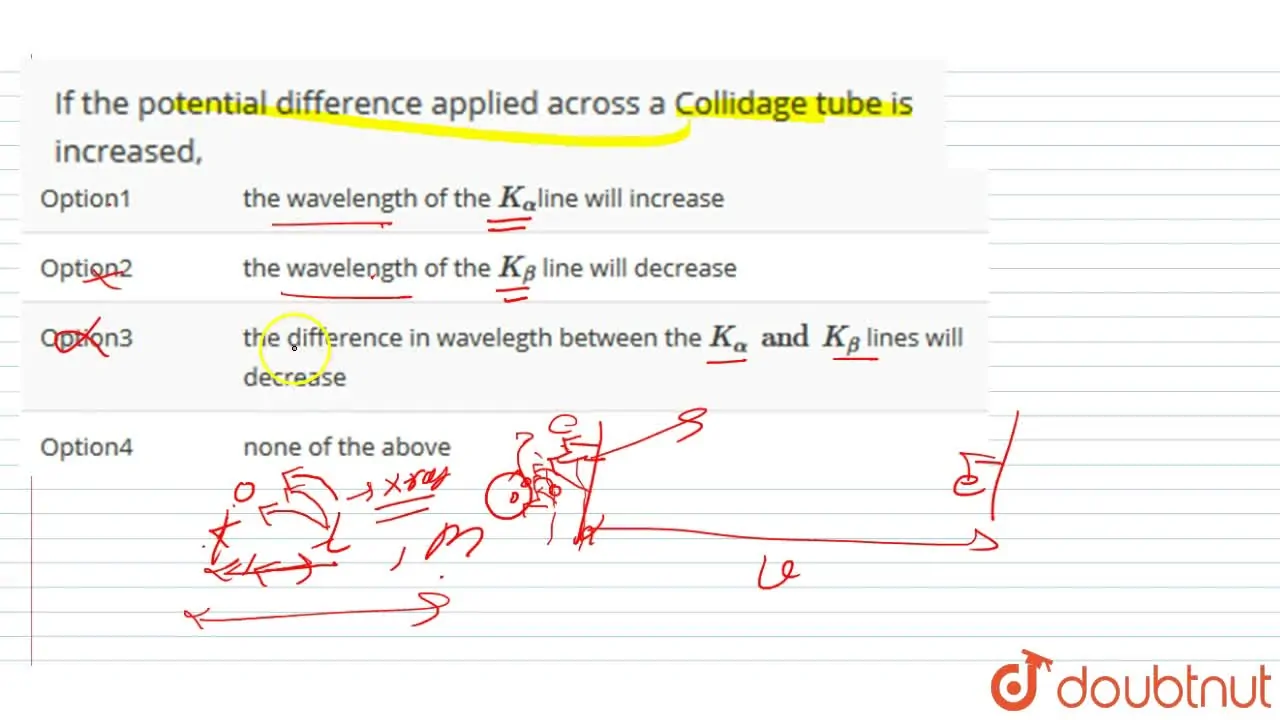 If the potential difference applied across a Collidage tube is
increased,
Option1 the wavelength of the Kαline will increase
Option2 the wavelength of the Kβ line will decrease
Option3 the difference in wavelegth between the Kα and Kβ lines will
decrease
Option4 none of the above
x-ray
doubtnut